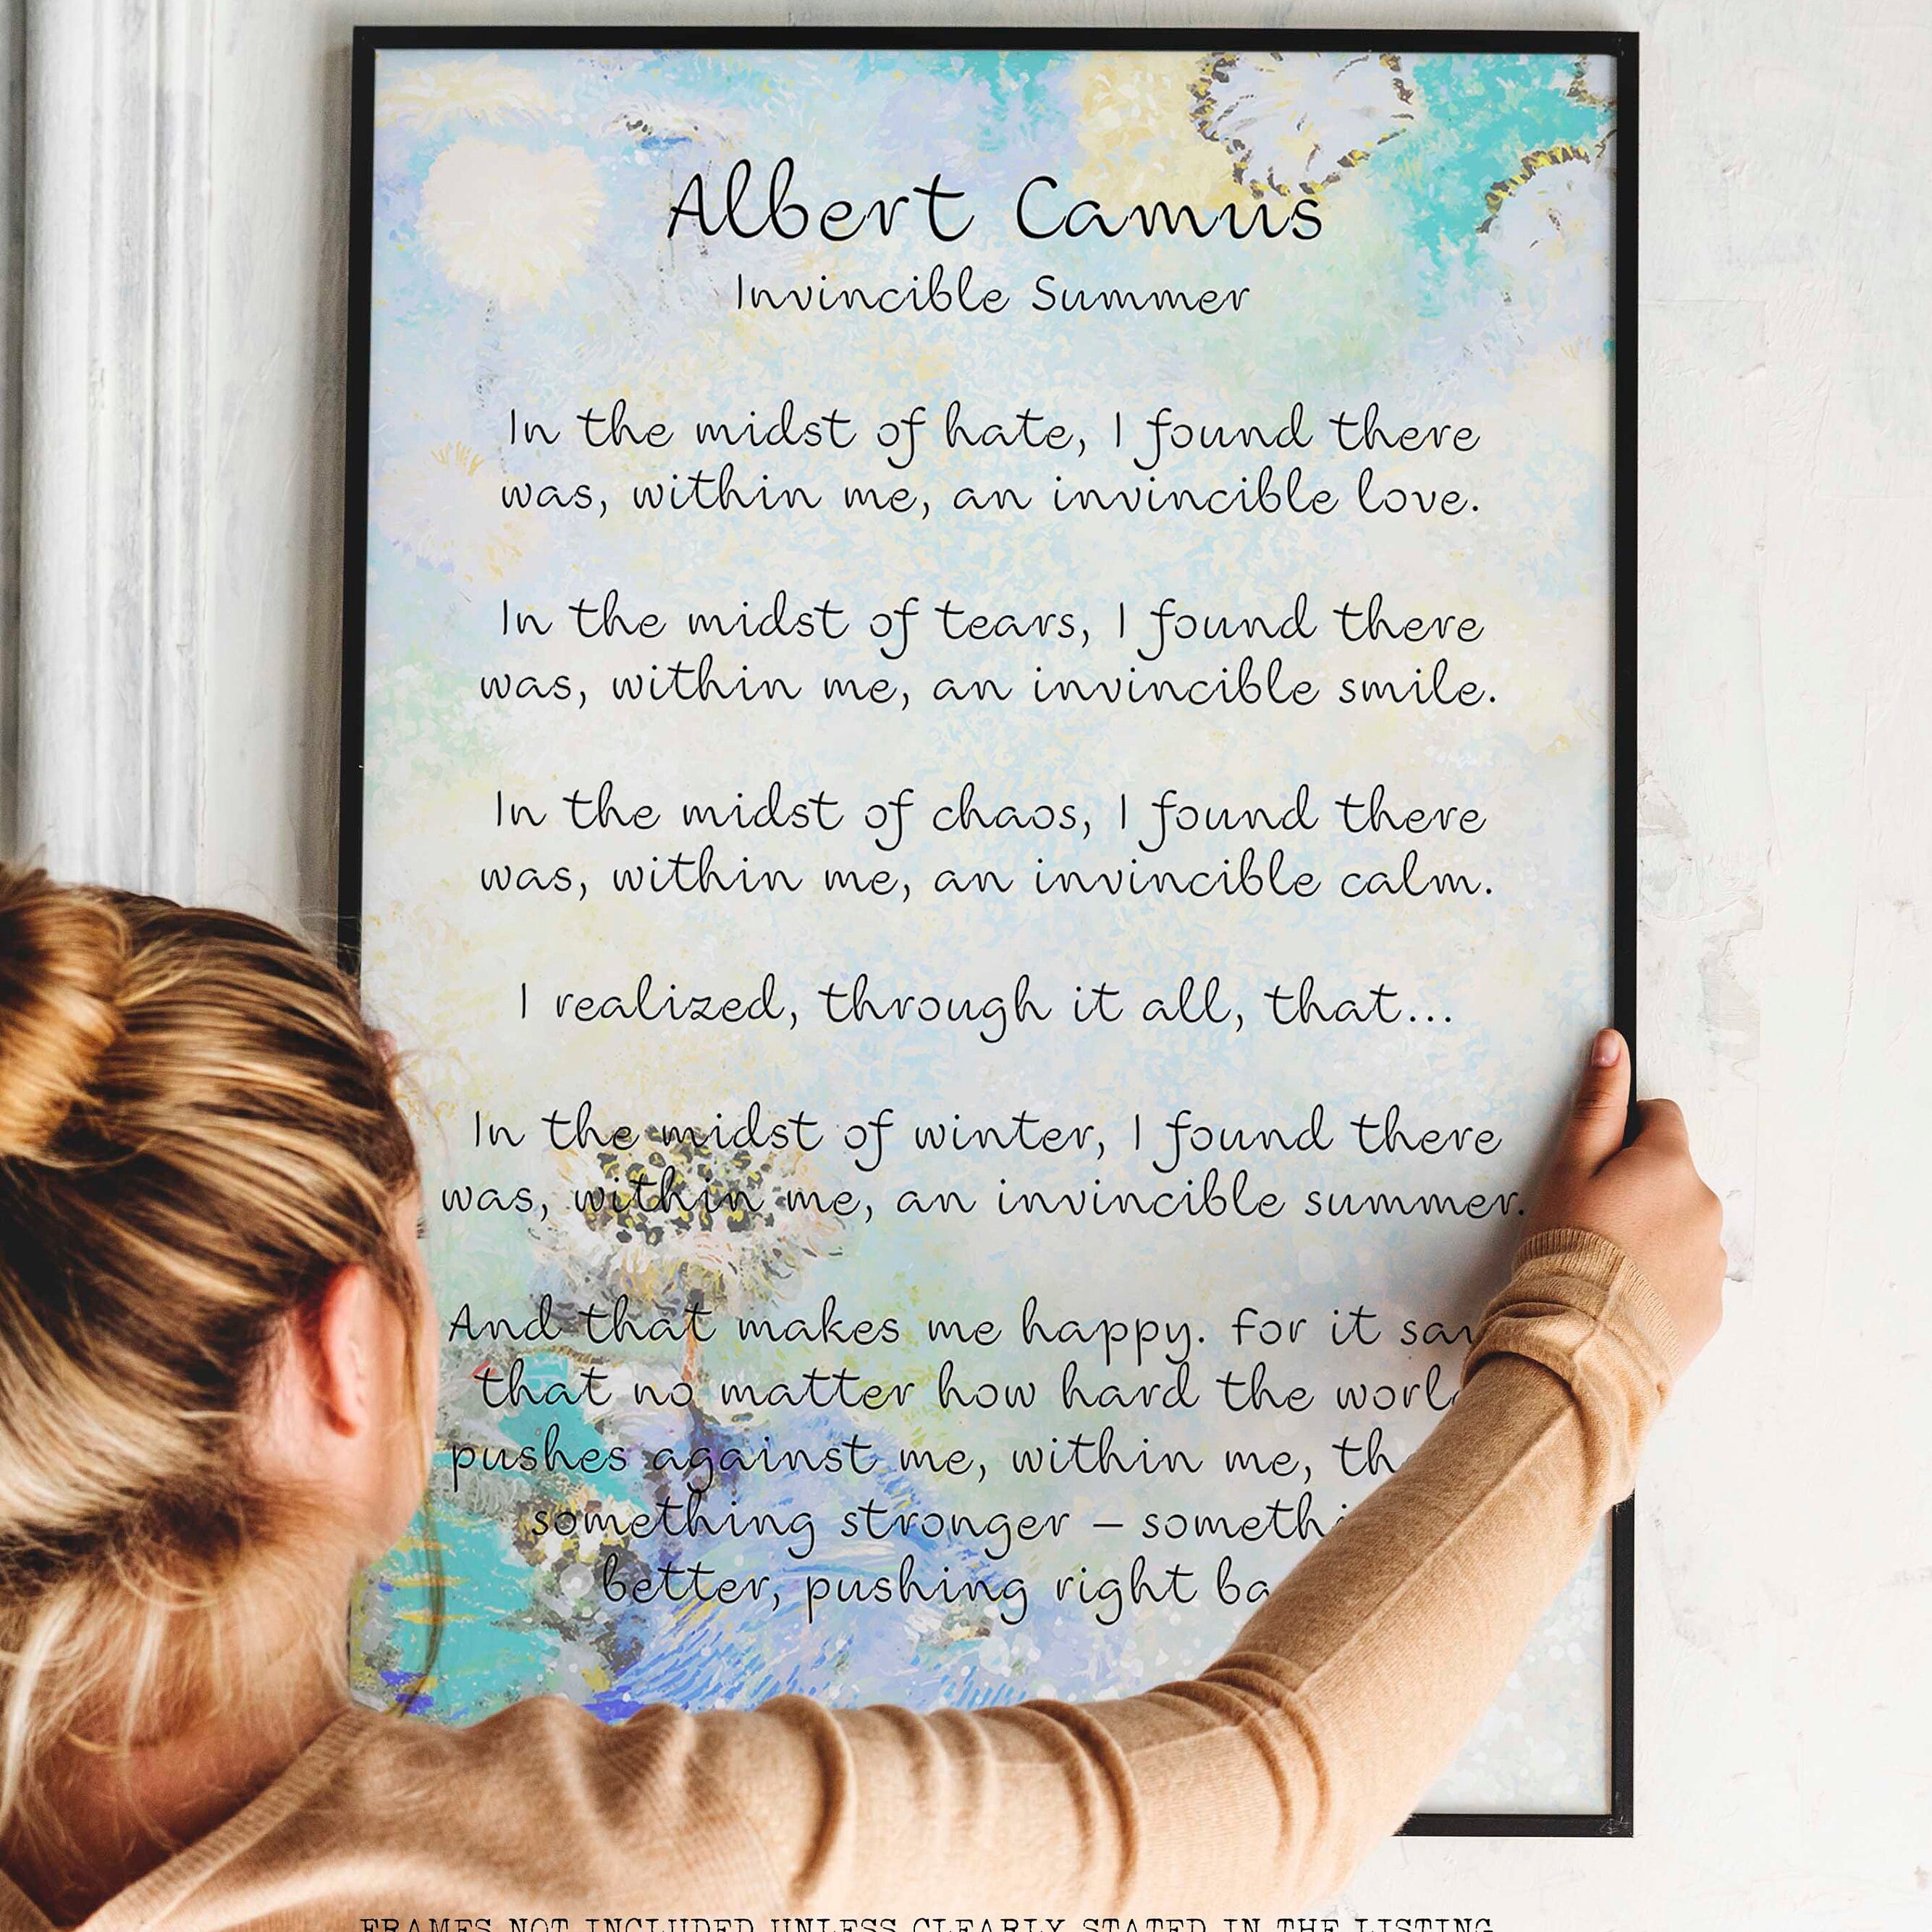 Albert Camus
Invincible Summer
In the midst of hate, I found there
was, within me, an invincible love.
In the midst of tears, I found there
was, within me, an invincible smile.
In the midst of chaos, I found there
was, within me, an invincible calm.
I realized, through it all, that...
In the midst of winter, I found there
was, within me, an invincible summer.
And that makes me happy. For it
that no matter how hard the
pushes against me, within me,
something stronger –
better, pushing right
FRAMES NOT INCLUDED UNLESS CLEARLY STATED IN THE LISTING